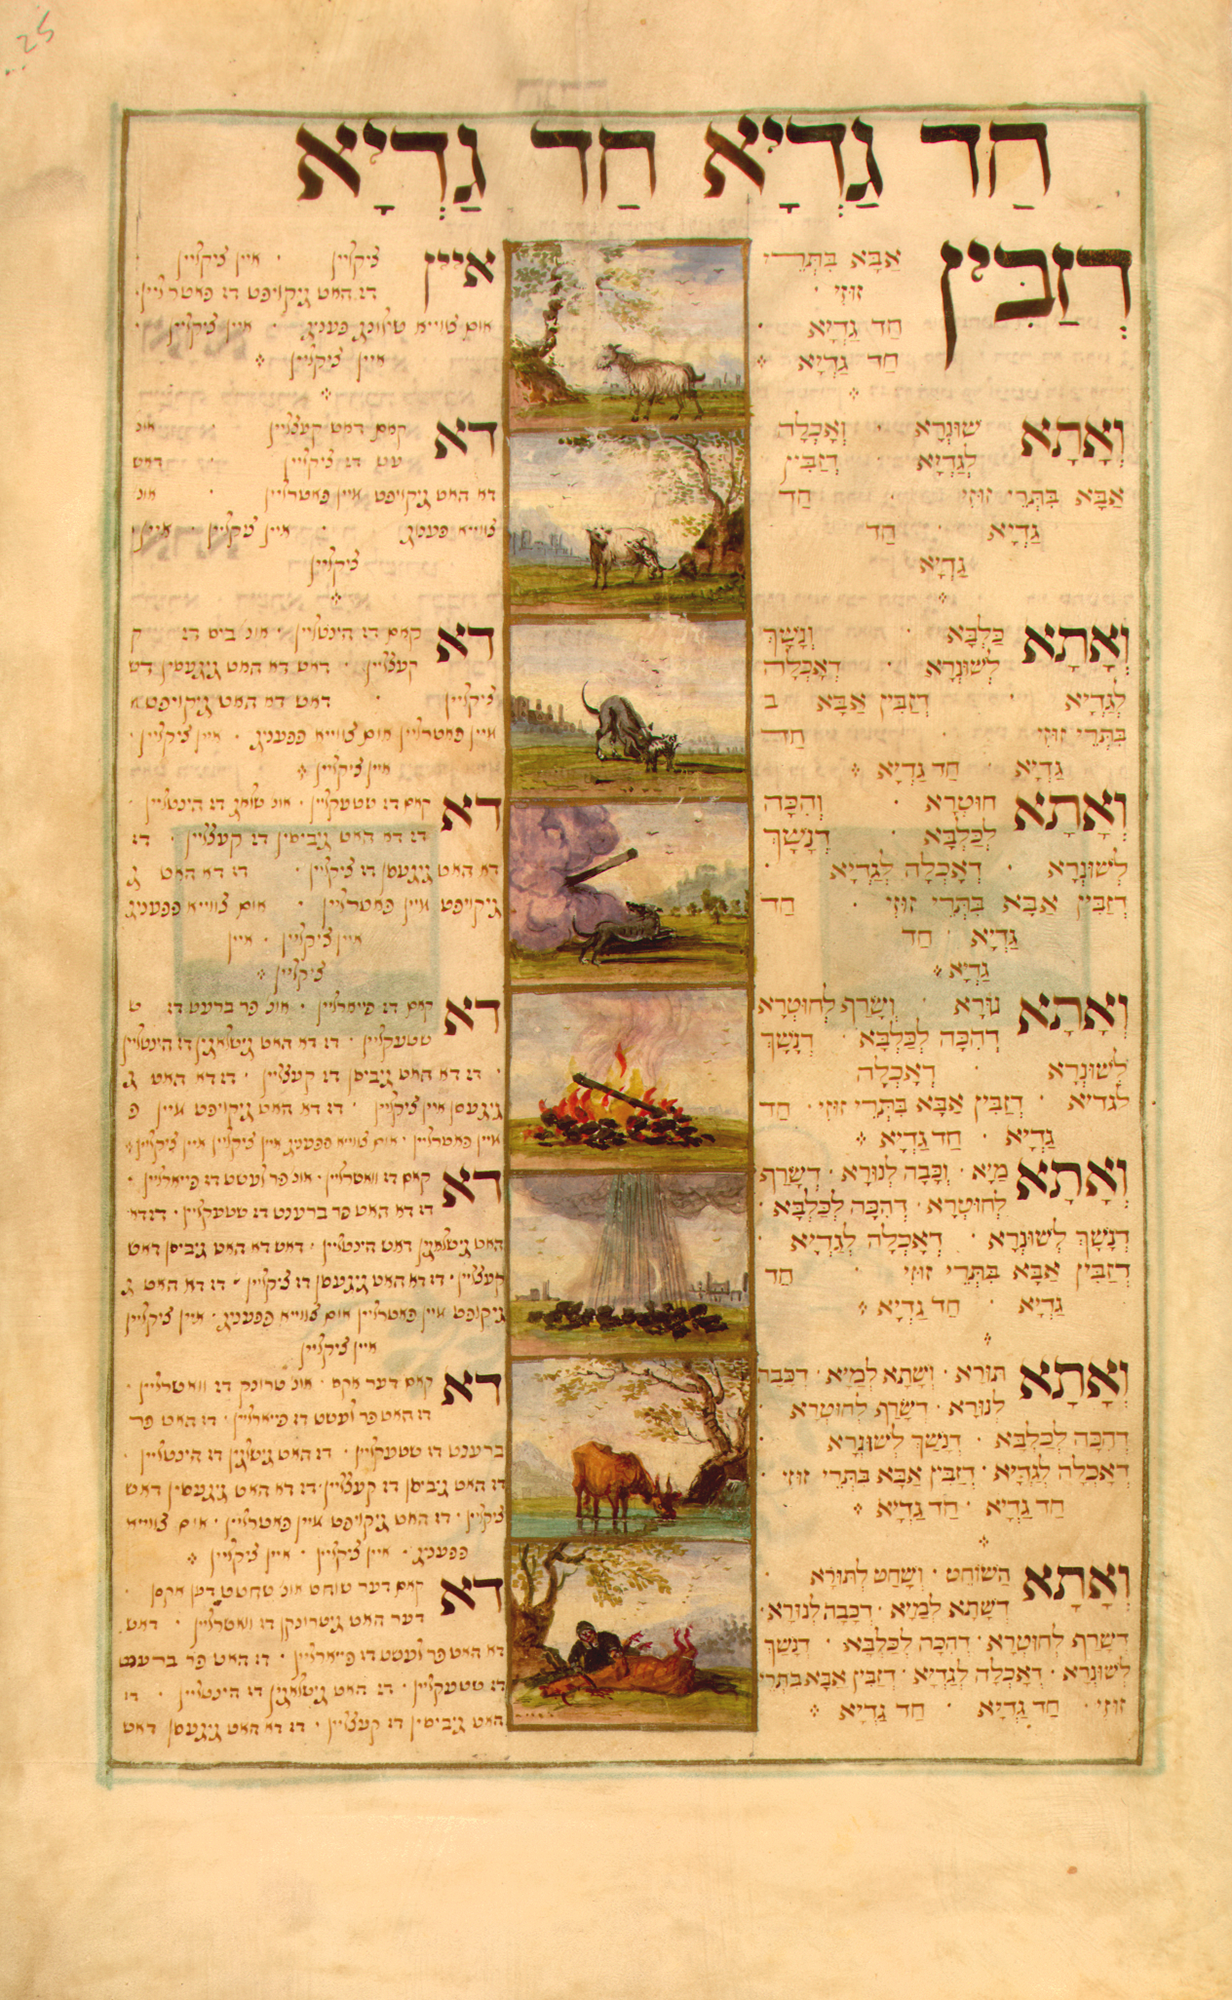 חַד גַּדְיָא חַד גַּדְיָא
דְזַבִּין אַבָּא בִּתְרֵי
זוּזֵי ·
חַד גַּדְיָא ·
חַד גַּדְיָא
וְאָתָא שׁוּנְרָא · וְאָכְלָה
לְגַדְיָא · דְזַבִּין
אַבָּא בִּתְרֵי זוּזֵי · חַד
גַּדְיָא · חַד
גַּדְיָא
וְאָתָא כַּלְבָּא · וְנָשַׁךְ
לְשׁוּנְרָא · דְאָכְלָה
לְגַדְיָא · דְזַבִּין אַבָּא ב
בִּתְרֵי זוּזֵי · חַד
גַּדְיָא · חַד גַּדְיָא
וְאָתָא חוּטְרָא · וְהִכָּה
לְכַלְבָּא · דְנָשַׁךְ
לְשׁוּנְרָא · דְאָכְלָה לְגַדְיָא ·
דְזַבִּין אַבָּא בִּתְרֵי זוּזֵי · חַד
גַּדְיָא · חַד
גַּדְיָא
וְאָתָא נוּרָא · וְשָׂרַף לְחוּטְרָא
דְהִכָּה לְכַלְבָּא · דְנָשַׁךְ
לְשׁוּנְרָא · דְאָכְלָה
לגדיא · דְזַבִּין אַבָּא בִּתְרֵי זוּזֵי · חַד
גַּדְיָא · חַד גַּדְיָא
וְאָתָא מַיָא · וְכָבָה לְנוּרָא · דְשָׂרַף
לְחוּטְרָא · דְהִכָּה לְכַלְבָּא ·
דְנָשַׁךְ לְשׁוּנְרָא · דְאָכְלָה לְגַדְיָא
דְזַבִּין אַבָּא בִּתְרֵי זוּזֵי · חַד
גַּדְיָא · חַד גַּדְיָא
וְאָתָא תוֹרָא · וְשָׁתָא לְמַיָא · דְכָבָה
לְנוּרָא · דְשָׂרַף לְחוּטְרָא ·
דְהִכָּה לְכַלְבָּא · דְנָשַׁךְ לְשׁוּנְרָא
דְאָכְלָה לְגַדְיָא · דְזַבִּין אַבָּא בִּתְרֵי זוּזֵי ·
חַד גַּדְיָא · חַד גַּדְיָא
וְאָתָא הַשׁוֹחֵט · וְשָׁחַט לְתוֹרָא
דְשָׁתָא לְמַיָא · דְכָבָה לְנוּרָא ·
דְשָׂרַף לְחוּטְרָא · דְהִכָּה לְכַלְבָּא · דְנָשַׁךְ
לְשׁוּנְרָא · דְאָכְלָה לְגַדְיָא · דְזַבִּין אַבָּא בִּתְרֵי
זוּזֵי · חַד גַּדְיָא · חַד גַּדְיָא
איין ציקליין · איין ציקליין
דז האט גיקויפט דז פאטרליין
אום צווייא שילינג פפעניג · איין ציקליין
איין ציקליין
דא קאם דאש קעצליין · אונ
עש דז ציקליין · דאש
דא האט גיקויפט איין פאטרליין · אונ
צווייא פפעניג · איין ציקליין · איין
ציקליין
דא קאם דז הינטליין · אונ ביס דז ק
קעצליין · דאש דא האט גיגעסין דש
ציקליין · דאש דא האט גיקויפט א
איין פאטרליין אום צווייא פפעניג · איין ציקליין
איין ציקליין
דא קאם דז שטעקליין · אונ שלוג דז הינטליין
דז דא האט גיביסין דז קעצליין · דז
דא האט גיגעסן דז ציקליין · דז דא האט ג
גיקויפט איין פאטרליין · אום צווייא פפעניג
איין ציקליין · איין
ציקליין
דא קאם דז פייארליין · אונ פר ברענט דז ש
שטעקליין · דז דא האט גישלאגין דז הינטליין
דז דא האט גיביסן דז קעצליין · דז דא האט ג
גיגעסן איין ציקליין · דז דא האט גיקויפט איין פ
איין פאטרליין · אום צווייא פפעניג איין ציקליין איין ציקליין
דא קאם דז וואסרליין · אונ פר לעשט דז פייארליין
דז דא האט פר ברענט דז שטעקליין · דז דא
האט גישלאגין דאש הינטליין · דאש דא האט גיביסן דאש
קעצליין · דז דא האט גיגעסן דז ציקליין · דז דא האט ג
גיקויפט איין פאטרליין אום צווייא פפעניג · איין ציקליין
איין ציקליין
דא קאם דער אקס · אונ טרונק דז וואסרליין
דז האט פר לעשט דז פייארליין · דז האט פר
ברענט דז שטעקליין · דז האט גישלאגין דז הינטליין
דז האט גיביסן דז קעצליין · דז דא האט גיגעסין דאש
ציקליין · דז האט גיקויפט איין פאטרליין · אום צווייא
פפעניג · איין ציקליין · איין ציקליין
דא קאם דער שוחט אונ שחטט דען אקסן
דער האט גיטרונקן דז וואסרליין · דאש
דא האט פר לעשט דז פייארליין · דז האט פר ברענט
דז שטעקליין · דז האט גישלאגין דז הינטליין · דז
האט גיביסין דז קעצליין · דז דא האט גיגעסן דאש
25